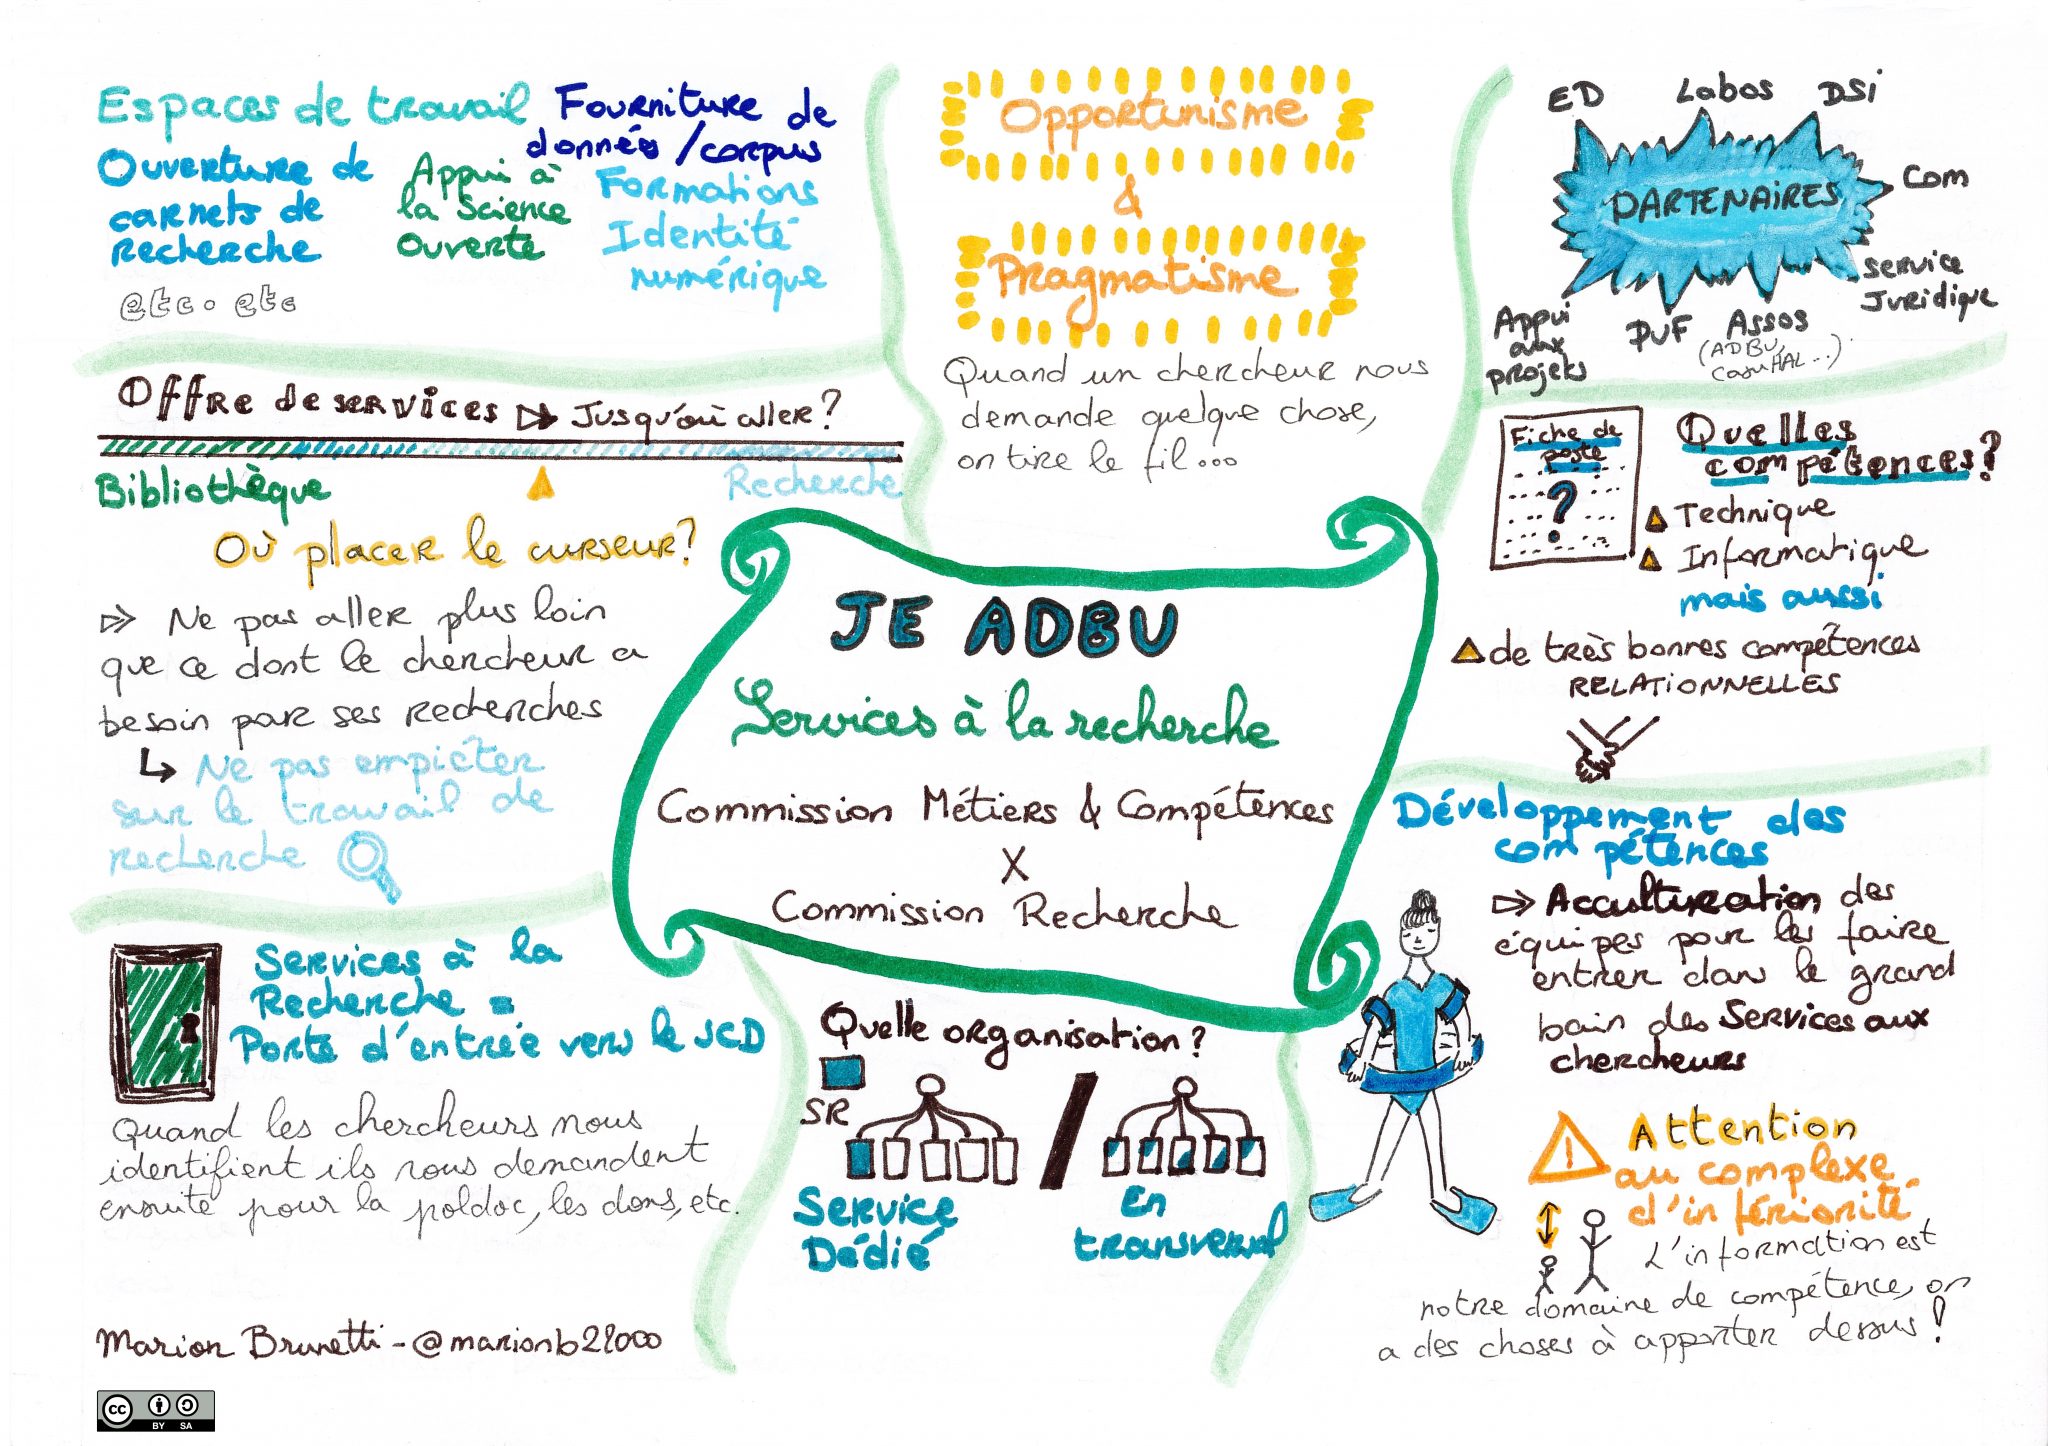 Espaces de travail
Fourniture de
données / corpus
Ouverture de
carnets de
recherche
Appui à
la Science
Ouverte
Formations
Identité
numérique
etc. etc
Opportunisme
&
Pragmatisme
Quand un chercheur nous
demande quelque chose,
on tire le fil...
ED
Labos
DSI
PARTENAIRES
Com
Service
Juridique
Assos
(ADBU,
CasuHAL...)
PUF
Appui
aux
projets
Offre de services ▷ Jusqu'où aller ?
Bibliothèque
Recherche
Où placer le curseur ?
Ne pas aller plus loin
que ce dont le chercheur a
besoin par ses recherches
↳ Ne pas empiéter
sur le travail de
recherche
Fiche de
poste
?
Quelles
compétences ?
Technique
Informatique
mais aussi
de très bonnes compétences
RELATIONNELLES
JE ADBU
Services à la recherche
Commission Métiers & Compétences
X
Commission Recherche
Développement des
compétences
Acculturation des
équipes pour les faire
entrer dans le grand
bain des Services aux
chercheurs
Services à la
Recherche =
Porte d'entrée vers le SCD
Quand les chercheurs nous
identifient ils nous demandent
ensuite pour la poldoc, les dons, etc.
Quelle organisation ?
SR
/
Service
Dédié
En
transversal
! Attention
au complexe
d'infériorité
L'information est
notre domaine de compétence, on
a des choses à apporter dessus !
Marion Brunetti - @marionb22000
cc BY SA